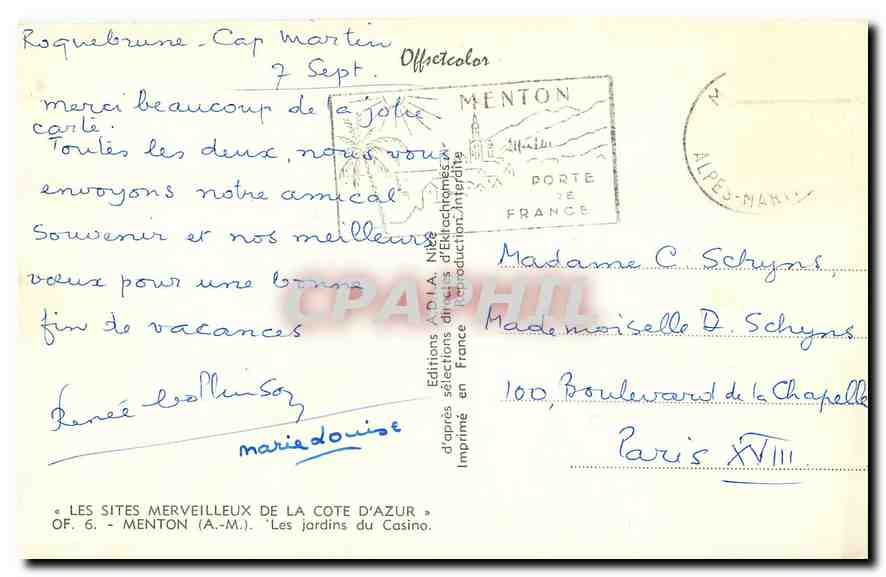 Roquebrune - Cap Martin
7 Sept.
Merci beaucoup de la jolie
carte.
Toutes les deux, nous vous
envoyons notre amical
souvenir et nos meilleurs
vœux pour une bonne
fin de vacances
Renée
Marie Louise
« LES SITES MERVEILLEUX DE LA COTE D'AZUR »
OF. 6. - MENTON (A.-M.). 'Les jardins du Casino.
Offsetcolor
Editions A.D.I.A. Nice
d'après sélections directes d'Ektachromes.
Imprimé en France Reproduction Interdite
MENTON
PORTE
DE
FRANCE
ALPES-MARI
CPAPHIL
Madame C Schyns,
Mademoiselle D. Schyns
100, Boulevard de la Chapelle
Paris XVIII